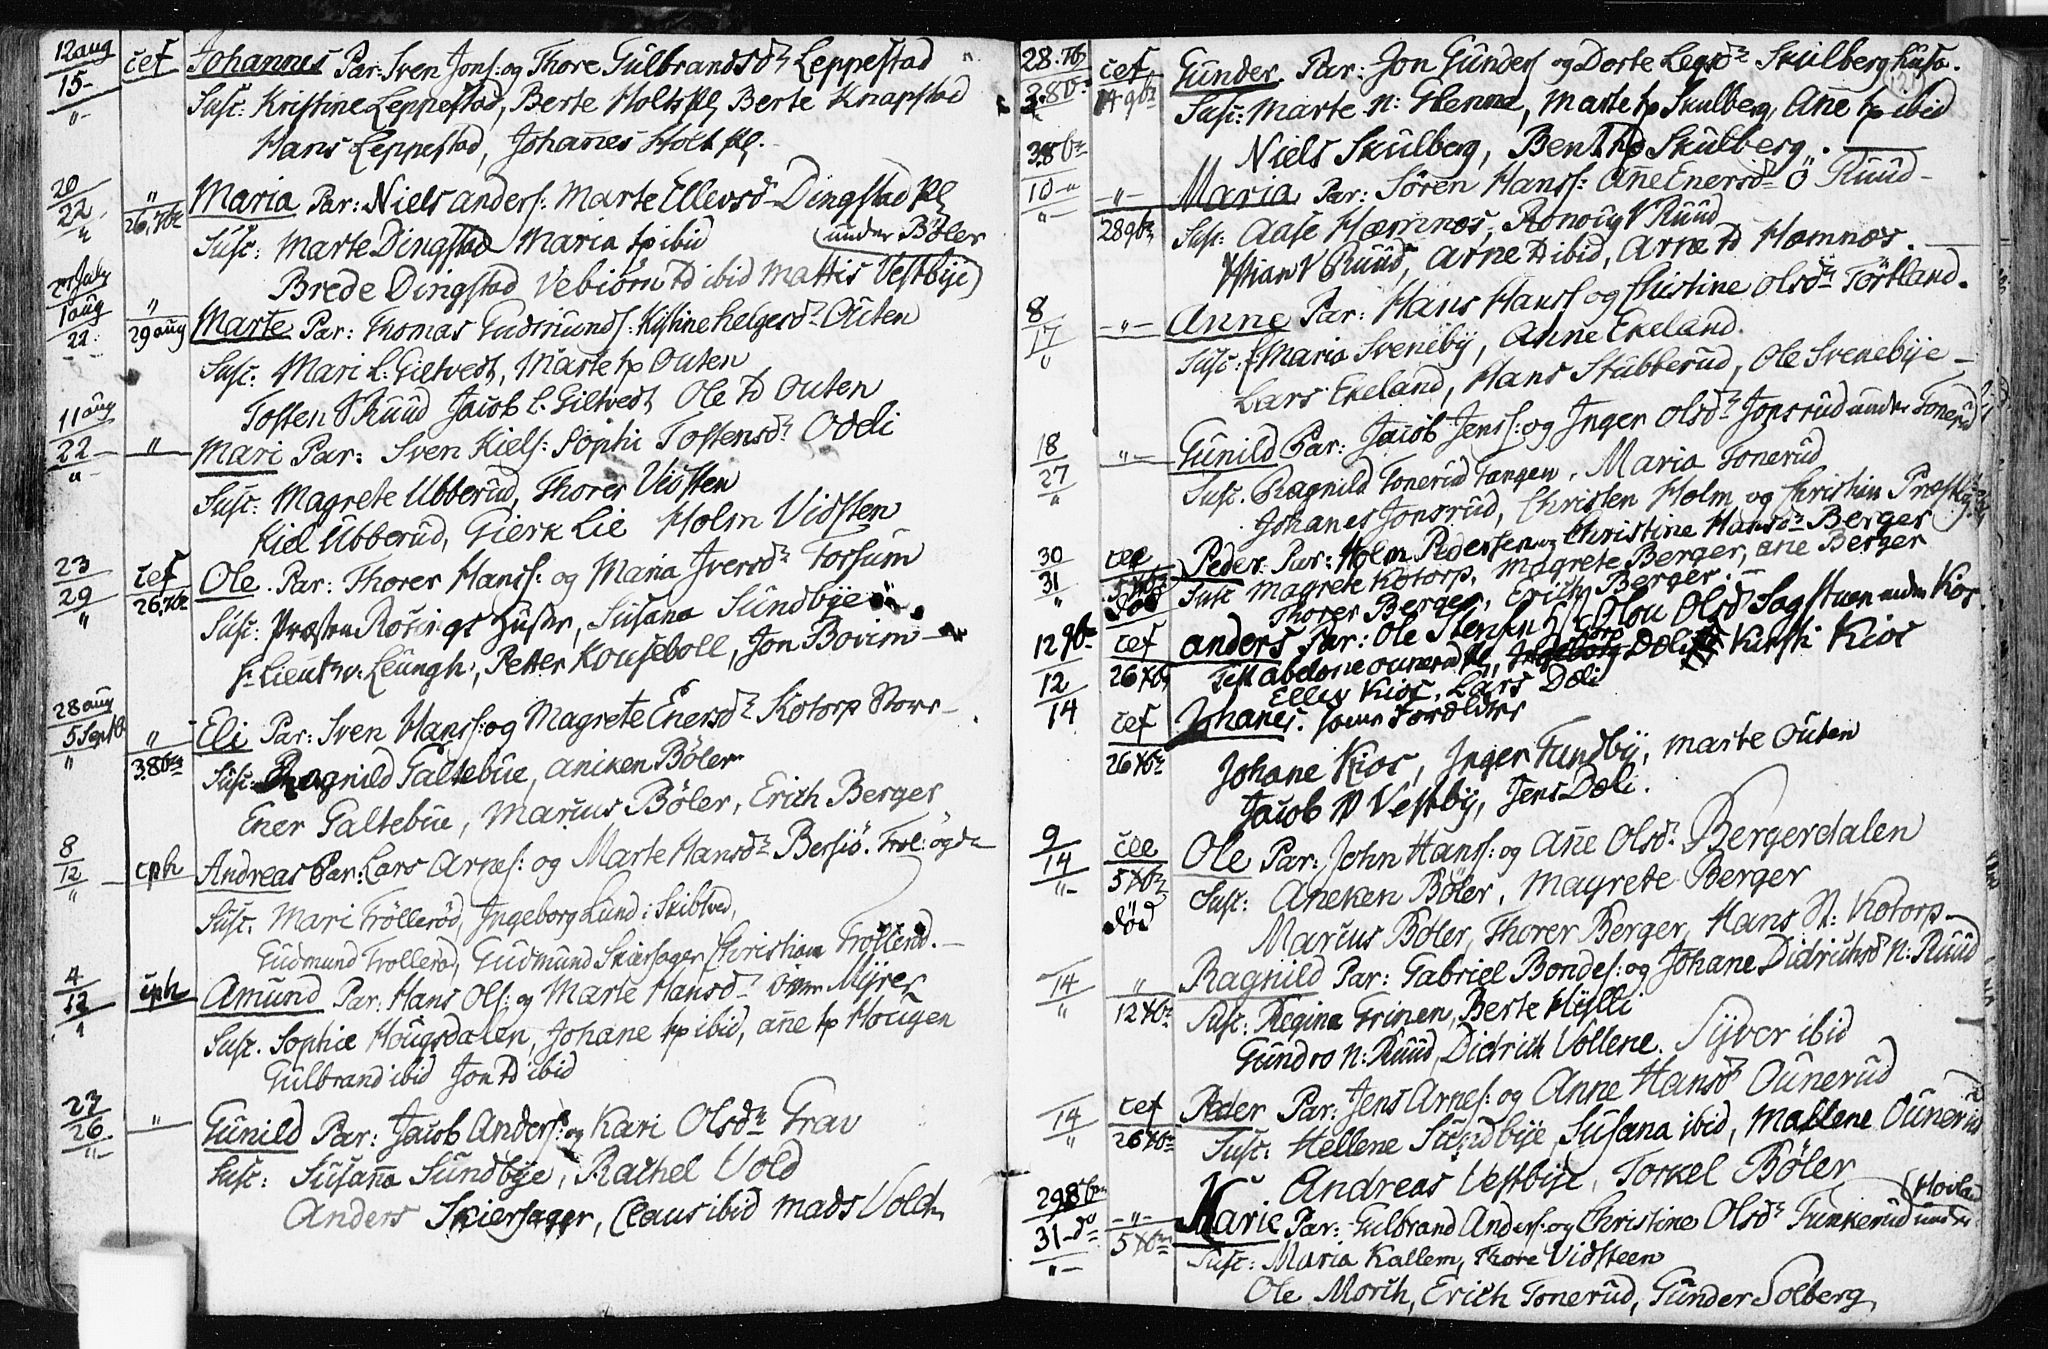 12 aug
15 -
cef
Johannes Par: Sven Jons: og Thore Gulbrandsdr Leppestad
Susc: Kristine Leppestad, Berte Holts Pl, Berte Knapstad
Hans Leppestad, Johanes Holt Pl.
20
22
"
26, 7br
Maria Par: Niels anders: Marte Ellevsdr Dingstad Pl
under Böler
Susc: Marte Dingstad Maria tp ibid
Brede Dingstad Vebiörn td ibid Mattis Vestbye
27 July
1 aug
22
"
29 aug
Marte Par: Thomas Gudmunds: Kistine helgesdr Outen
Susc: Mari L: Giltvedt, Marte tp Outen
Tosten V Ruud Jacob L. Giltvedt Ole td Outen
11 aug
22
"
Mari Par: Sven Kiels: Sophi Tostensdr Oddi
Susc: Magrete Ubberud, Thorer Vidsten
Kiel Ubberud, Gierk Lie Holm Vidsten
23
29
cef
26, 7br
Ole. Par: Thorer Hanss: og Maria Iversdr Torsum
Susc: Præsten Rosings Hustr, Susana Sundbye
Lieutn v: Leungh:, Petter Kouseboll, Jon Bovim
28 aug
5 Septb
"
3 8br
Eli Par: Sven Hans: og Magrete Enersdr Kotorp Store
Susc: Ragnild Galtebue, aniken Böler
Ener Galtebue, Marcus Böler, Erich Berger
8
12
cph
Andreas Par: Lars Arnes: og Marte Hansdr Bersiö. Tröl: ögde
Susc. Mari Tröllerod, Ingeborg Lund i Skibtved,
Gudmund Trollerod, Gudmund Skiersager Christian Trollerod.
4
12
cph
Amund Par: Hans Ols: og Marte Hansdr Myrer
Susc. Sophie Hougsdalen, Johane tp ibid, añe tp Hougen
Gulbrand ibid Jon td ibid
23
26
"
Gunild Par: Jacob Anders: og Kari Olsdr Grav
Susc: Susaña Sundbye, Rachel Vold
Anders Skiersager, Claus ibid Mads Vold
28. 7br
2 8br
cef
14 9br
Gunder. Par: Jon Gunders og Dorte Legsdr Skulberghusa.
Susc: Marte n: Glenne, Marte tp Skulberg, Añe tp ibid
Niels Skulberg, Bent td Skulberg.
3 8br
10 -
"
28 9br
Maria Par: Sören Hanss: Ane Enersdr ö Ruud
Susc: Aase Hæmnæs, Ronoug V Ruud
Kstian V Ruud, Arne td ibid, Arne td Hæmnæs.
8
17
"
Anne Par: Hans Hanss og Christine Olsdr Törtland.
Susc: Maria Sveneby, Anne Ekeland.
Lars Ekeland, Hans Stubberud, Ole Svenebye
18
27
"
Gunild Par: Jacob Jenss: og Inger Olsdr Jonsrud under Tonerud
Susc. Ragnild Tonerud Tangen, Maria Tonerud
Johanes Jonsrud, Christen Holm og Christian Præstg.
30
31
cee
5 Xbr
död
Peder. Par: Holm Pedersen og Christine Hansdr Berger
Susc Magrete Kotorp, Magrete Berger, ane Berger
Thorer Berger, Erich Berger.
12 9br
12
14
cef
26 Xbr
anders Par: Ole Olou Olsdr Sagstuen under Kios
Ingeborg Dæli Kirsti Kios
Ellev Kios, Lars Dæli
cef
26 Xbr
Johanes. samme Forældres
Johane Kios, Inger Fundby, Marte Outen
Jacob N Vestby, Jens Dæli.
9
14
cee
5 Xbr
död
Ole Par: John Hanss: og Añe Olsdr Bergerdalen
Susc: Aneken Böler, Magrete Berger
Marcus Böler, Thorer Berger, Hans St: Kotorp
14
"
12 Xbr
Ragnild Par: Gabriel Bondes: og Johane Didrichsdr N: Ruud
Susc: Regina Grinen, Berte Hylli
Gundro N: Ruud, Didrich Vollene. Syver ibid
14
"
cef
26 Xbr
Peder Par: Jens Arnes: og Anne Hansdr Ounerud
Susc: Hellene Sundbye, Susana ibid, Mallene Ounerud
Andreas Vestbye, Torkel Böler
29 8br
31 - do
"
5 Xbr
Karie Par: Gulbrand Anders: og Christine Olsdr Funkerud under
Susc: Maria Kallem, Thore Vidsteen
Ole Morth, Erich Tonerud, Gunder Solberg